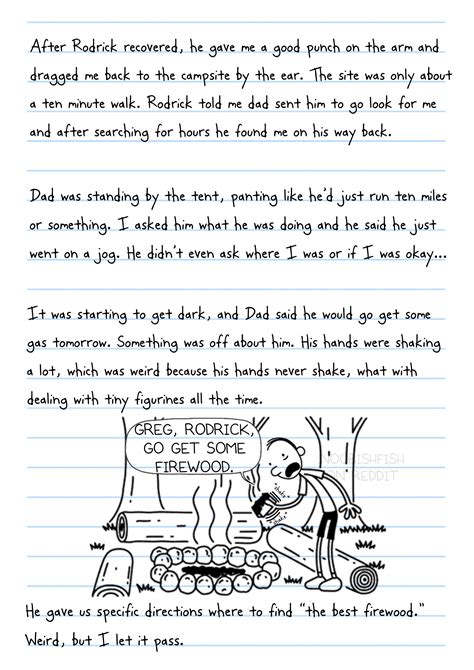 After Rodrick recovered, he gave me a good punch on the arm and
dragged me back to the campsite by the ear. The site was only about
a ten minute walk. Rodrick told me dad sent him to go look for me
and after searching for hours he found me on his way back.
Dad was standing by the tent, panting like he'd just run ten miles
or something. I asked him what he was doing and he said he just
went on a jog. He didn't even ask where I was or if I was okay...
It was starting to get dark, and Dad said he would go get some
gas tomorrow. Something was off about him. His hands were shaking
a lot, which was weird because his hands never shake, what with
dealing with tiny figurines all the time.
GREG, RODRICK,
GO GET SOME
FIREWOOD.
NOOBISHFISH
ON REDDIT
shake
shake
He gave us specific directions where to find "the best firewood."
Weird, but I let it pass.